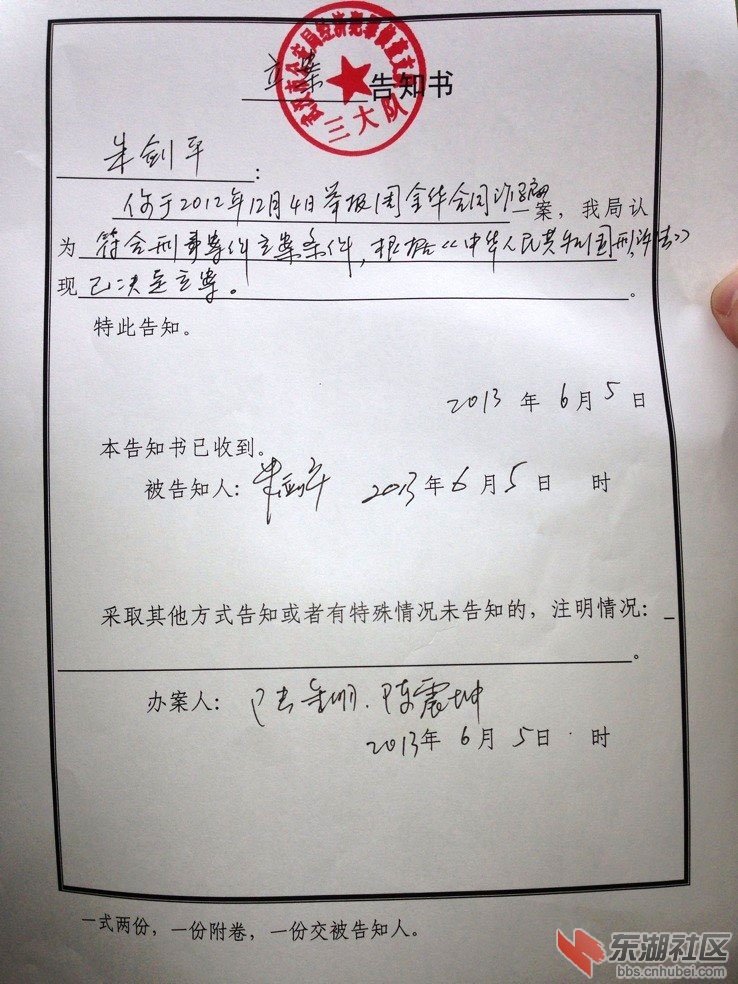 立案告知书
三大队
朱剑平:
你于2012年12月4日举报周金华合同诈骗一案，我局认
为符合刑事案件立案条件,根据《中华人民共和国刑诉法》
现已决定立案。。
特此告知。
2013年6月5日
本告知书已收到。
被告知人：朱剑平 2013年6月5日 时
采取其他方式告知或者有特殊情况未告知的，注明情况：
。
办案人： 陈震坤
2013年6月5日 时
一式两份，一份附卷，一份交被告知人。
东湖社区
bbs.cnhubei.com